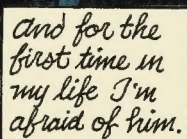 and for the
first time in
my life I'm
afraid of him.